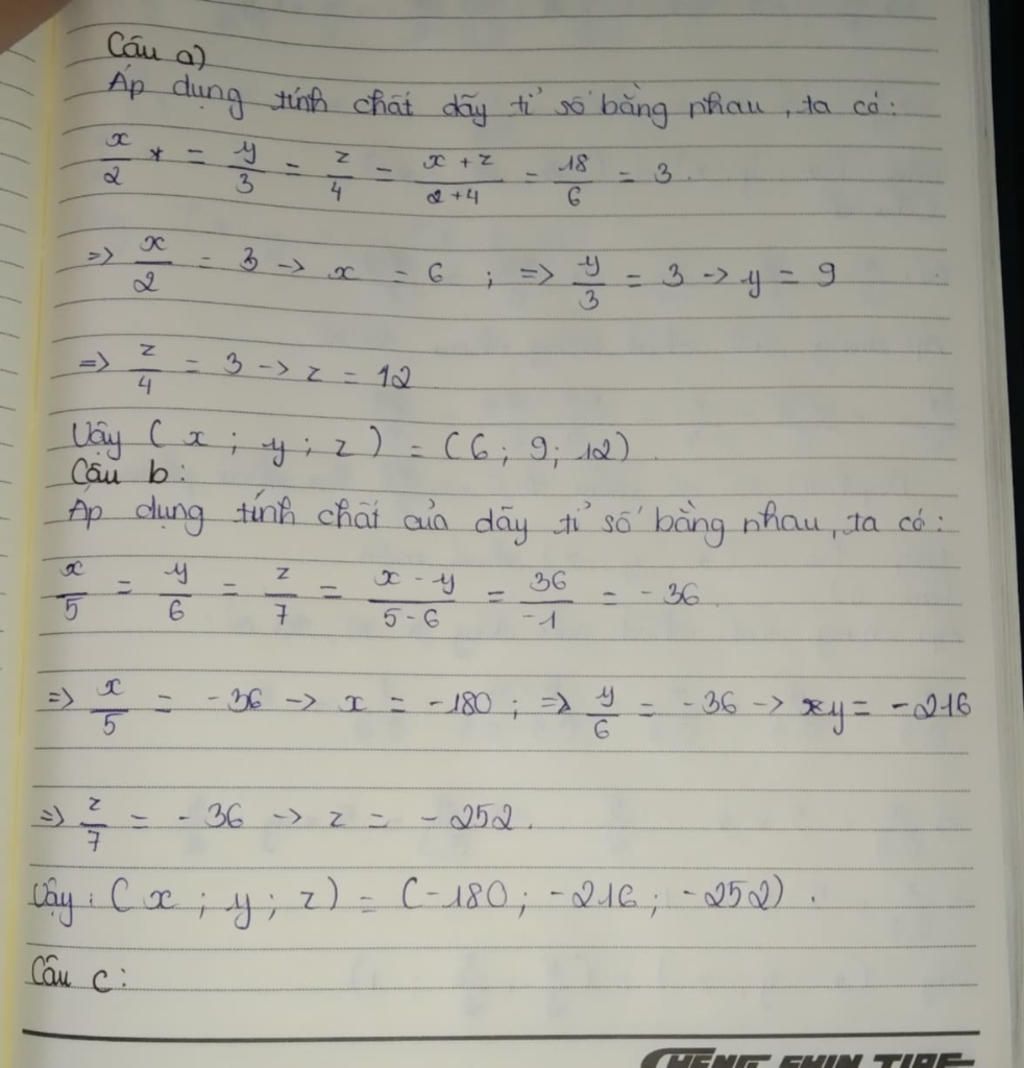 Câu a)
Áp dụng tính chất dãy tỉ số bằng nhau, ta có:
x/2 = y/3 = z/4 = (x + z)/(2+4) = 18/6 = 3.
=> x/2 = 3 -> x = 6 ; => y/3 = 3 -> y = 9
=> z/4 = 3 -> z = 12
Vậy (x ; y ; z) = (6 ; 9 ; 12).
Câu b:
Áp dụng tính chất của dãy tỉ số bằng nhau, ta có:
x/5 = y/6 = z/7 = (x - y)/(5 - 6) = 36/-1 = -36.
=> x/5 = -36 -> x = -180 ; => y/6 = -36 -> y = -216
=> z/7 = -36 -> z = -252.
Vậy : (x ; y ; z) = (-180 ; -216 ; -252).
Câu c:
CHENG SHIN TIRE